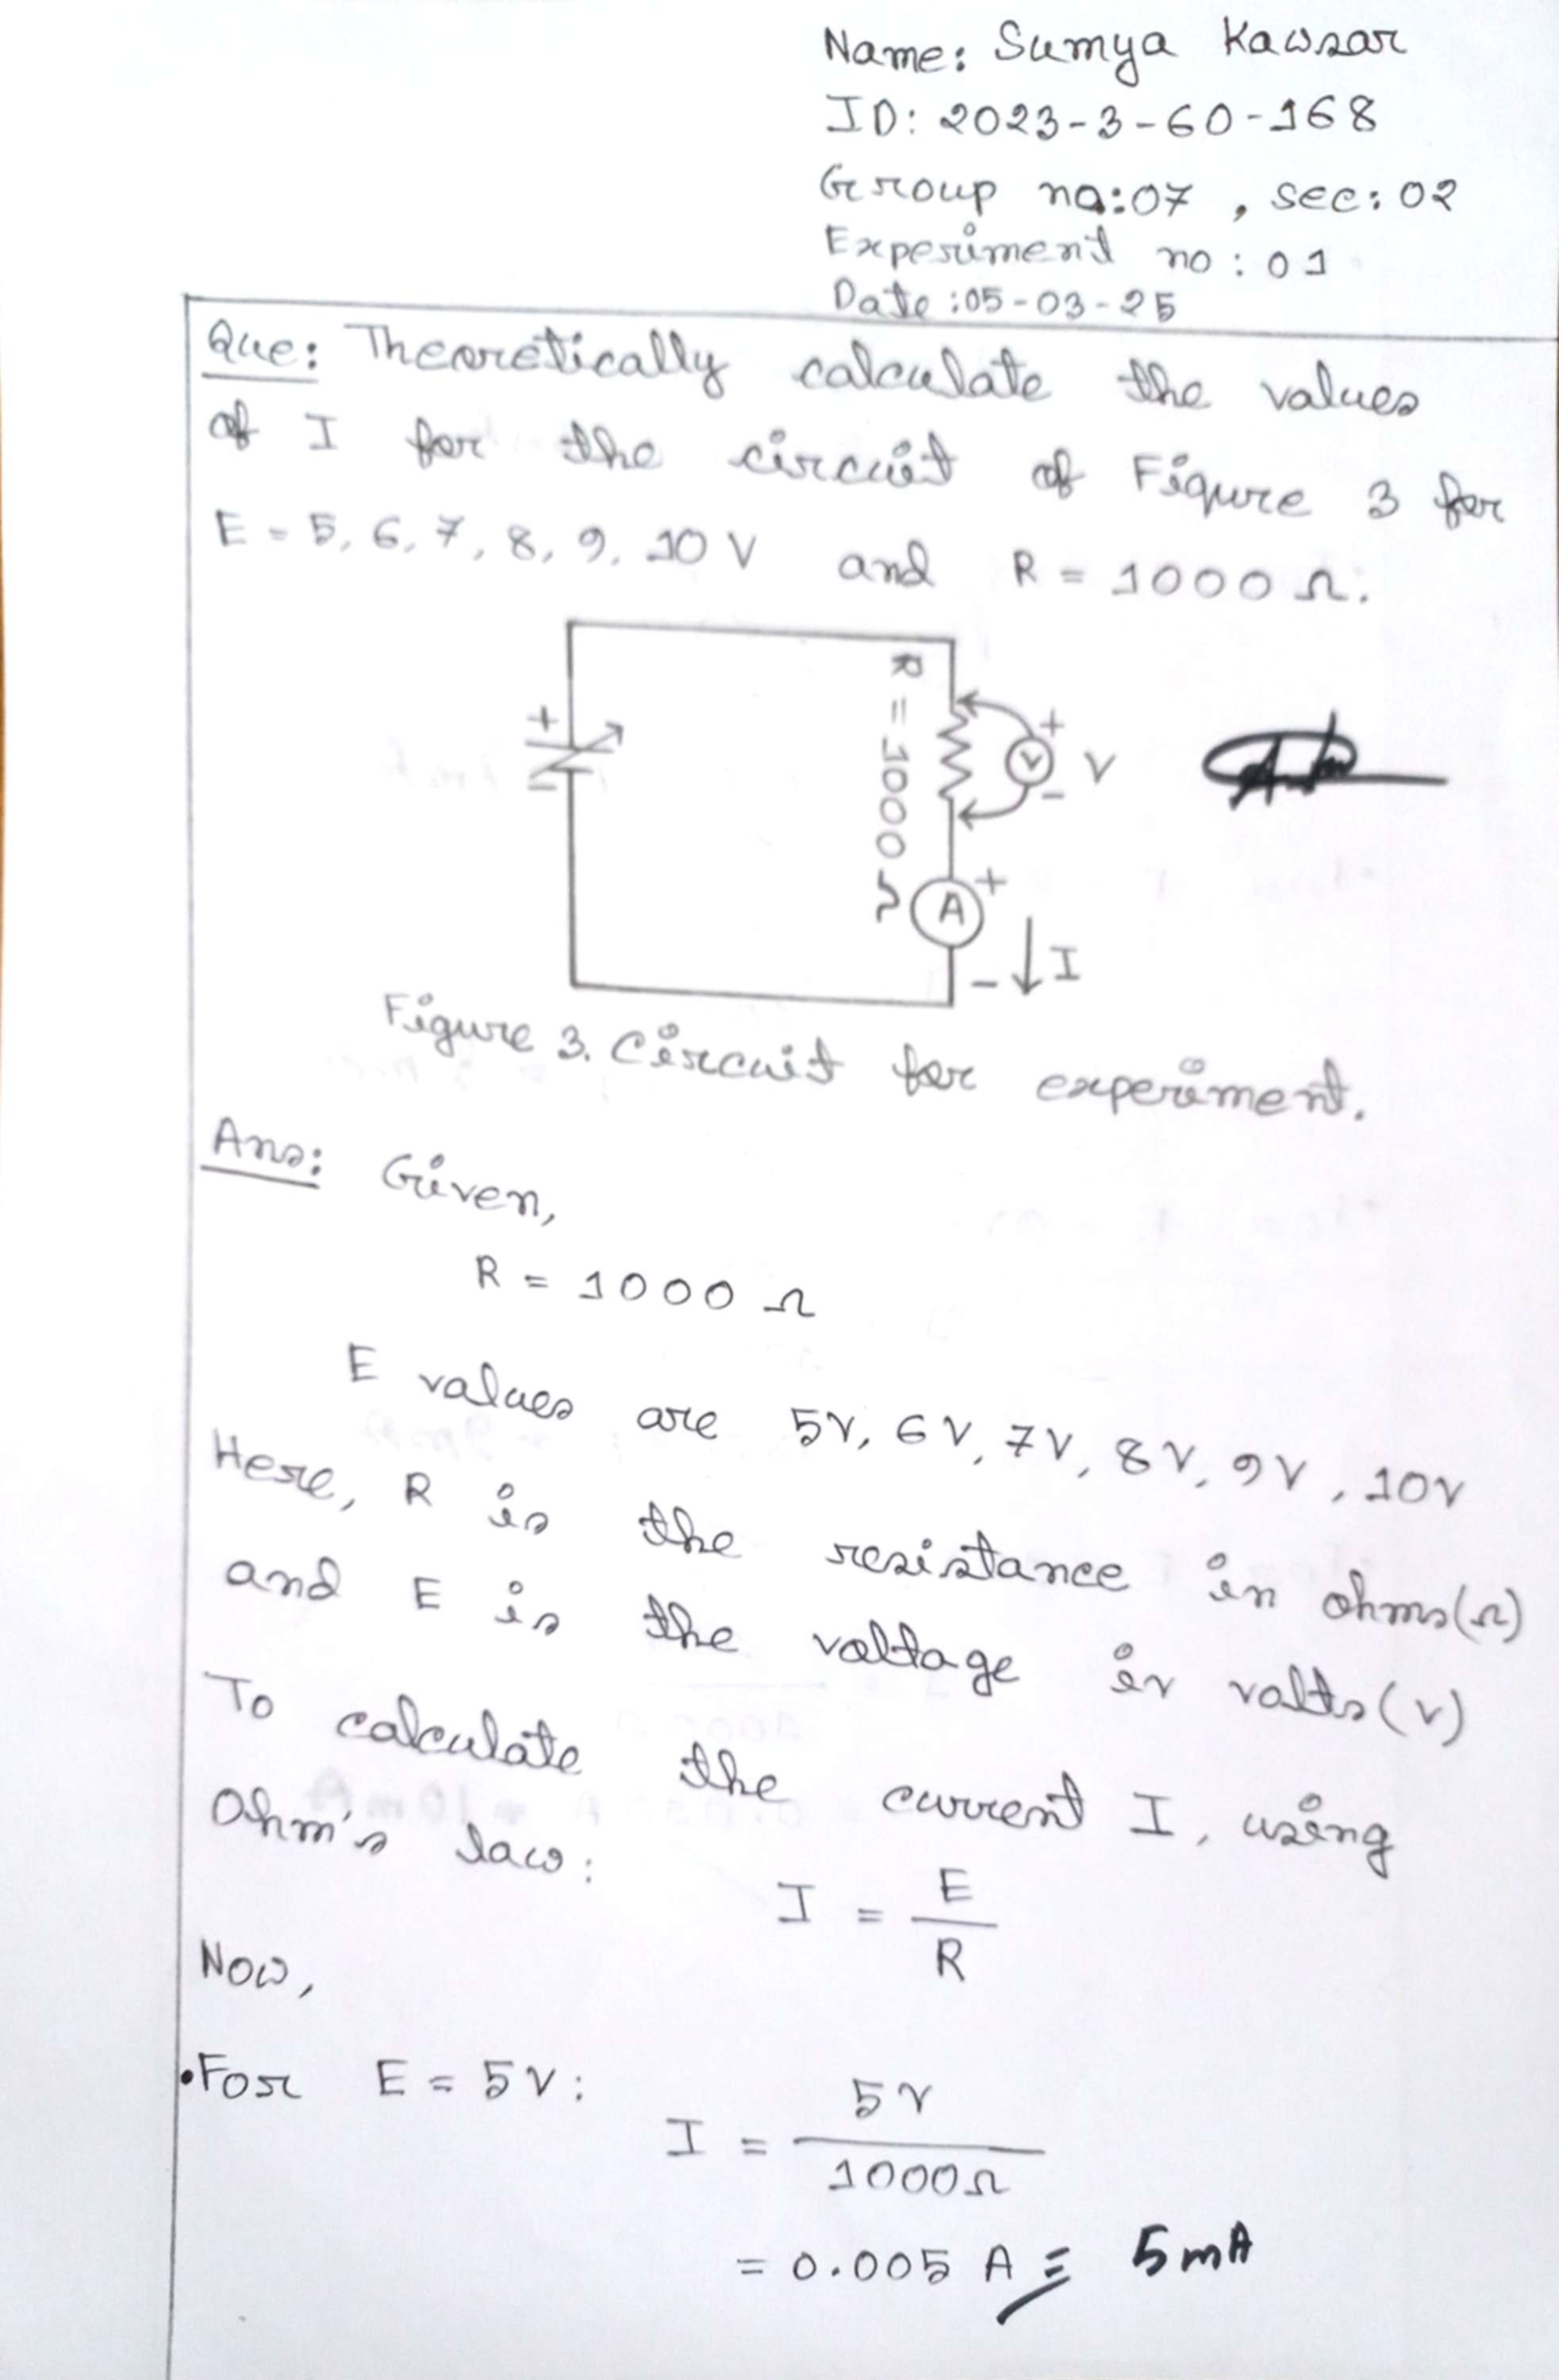 Name: Sumya Kawsar
ID: 2023-3-60-168
Group no:07 , sec: 02
Experiment no : 01
Date :05-03-25
Que: Theoretically calculate the values
of I for the circuit of Figure 3 for
E = 5, 6, 7, 8, 9, 10 V and R = 1000 Ω.
+
-
R = 1000 Ω
+
V
-
V
A
+
-
I
Figure 3. Circuit for experiment.
Ans: Given,
R = 1000 Ω
E values are 5V, 6V, 7V, 8V, 9V, 10V
Here, R is the resistance in ohms(Ω)
and E is the voltage in volts(v)
To calculate the current I, using
Ohm's law:
I = E
R
Now,
•For E = 5V:
I = 5V
1000Ω
= 0.005 A = 5mA